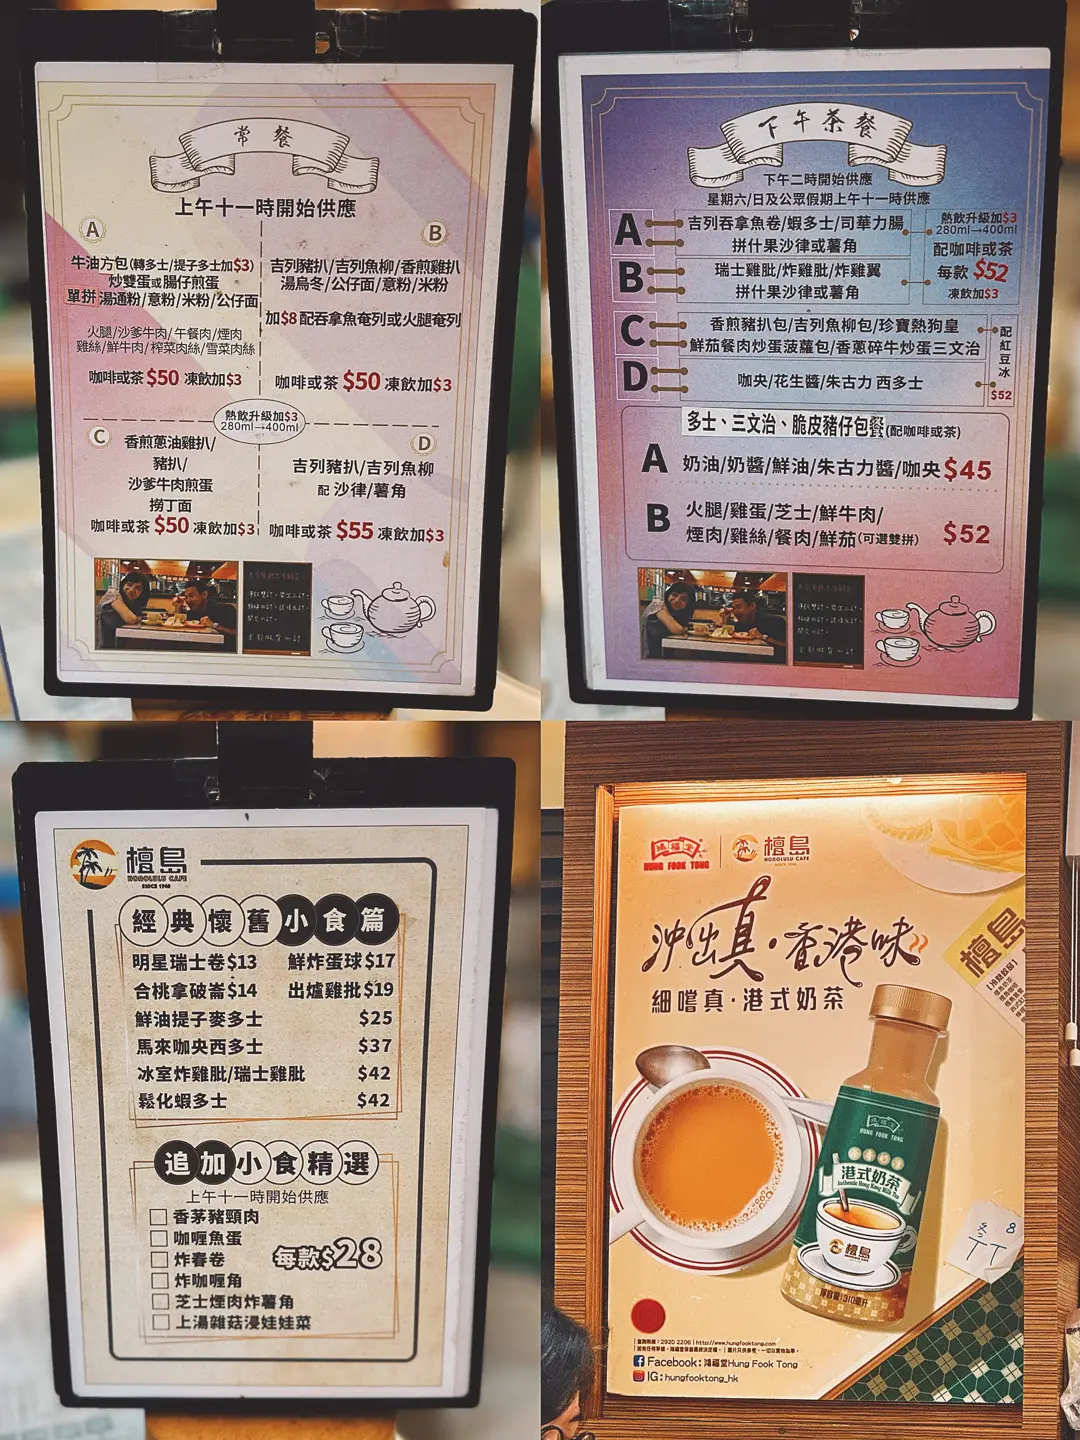 常餐
上午十一時開始供應
A
牛油方包(轉多士/提子多士加$3)
炒雙蛋或腸仔煎蛋
單拼 湯通粉/意粉/米粉/公仔面
火腿/沙爹牛肉/午餐肉/煙肉
雞絲/鮮牛肉/榨菜肉絲/雪菜肉絲
咖啡或茶 $50 凍飲加$3
B
吉列豬扒/吉列魚柳/香煎雞扒
湯烏冬/公仔面/意粉/米粉
加$8 配吞拿魚奄列或火腿奄列
咖啡或茶 $50 凍飲加$3
熱飲升級加$3
280ml→400ml
C
香煎蔥油雞扒/
豬扒/
沙爹牛肉煎蛋
撈丁面
咖啡或茶 $50 凍飲加$3
D
吉列豬扒/吉列魚柳
配 沙律/薯角
咖啡或茶 $55 凍飲加$3
下午茶餐
下午二時開始供應
星期六/日及公眾假期上午十一時供應
A
吉列吞拿魚卷/蝦多士/司華力腸
拼什果沙律或薯角
B
瑞士雞肶/炸雞肶/炸雞翼
拼什果沙律或薯角
熱飲升級加$3
280ml→400ml
配咖啡或茶
每款 $52
凍飲加$3
C
香煎豬扒包/吉列魚柳包/珍寶熱狗皇
鮮茄餐肉炒蛋菠蘿包/香蔥碎牛炒蛋三文治
D
咖央/花生醬/朱古力 西多士
配紅豆冰
$52
多士、三文治、脆皮豬仔包餐(配咖啡或茶)
A 奶油/奶醬/鮮油/朱古力醬/咖央 $45
B 火腿/雞蛋/芝士/鮮牛肉/
煙肉/雞絲/餐肉/鮮茄(可選雙拼) $52
檀島
HONOLULU CAFE
SINCE 1940
經典懷舊小食篇
明星瑞士卷$13 鮮炸蛋球$17
合桃拿破崙$14 出爐雞批$19
鮮油提子麥多士 $25
馬來咖央西多士 $37
冰室炸雞肶/瑞士雞肶 $42
鬆化蝦多士 $42
追加小食精選
上午十一時開始供應
香茅豬頸肉
咖喱魚蛋
炸春卷
炸咖喱角
芝士煙肉炸薯角
上湯雜菇浸娃娃菜
每款$28
鴻福堂
HUNG FOOK TONG
檀島
HONOLULU CAFE
SINCE 1940
沖出真·香港味
細嚐真·港式奶茶
檀島
鴻福堂
HUNG FOOK TONG
港式奶茶
Authentic Hong Kong Milk Tea
檀島
HONOLULU CAFE
淨容量:310毫升
8
查詢熱線：2920 2206 | http://www.hungfooktong.com
Facebook: 鴻福堂Hung Fook Tong
IG: hungfooktong_hk